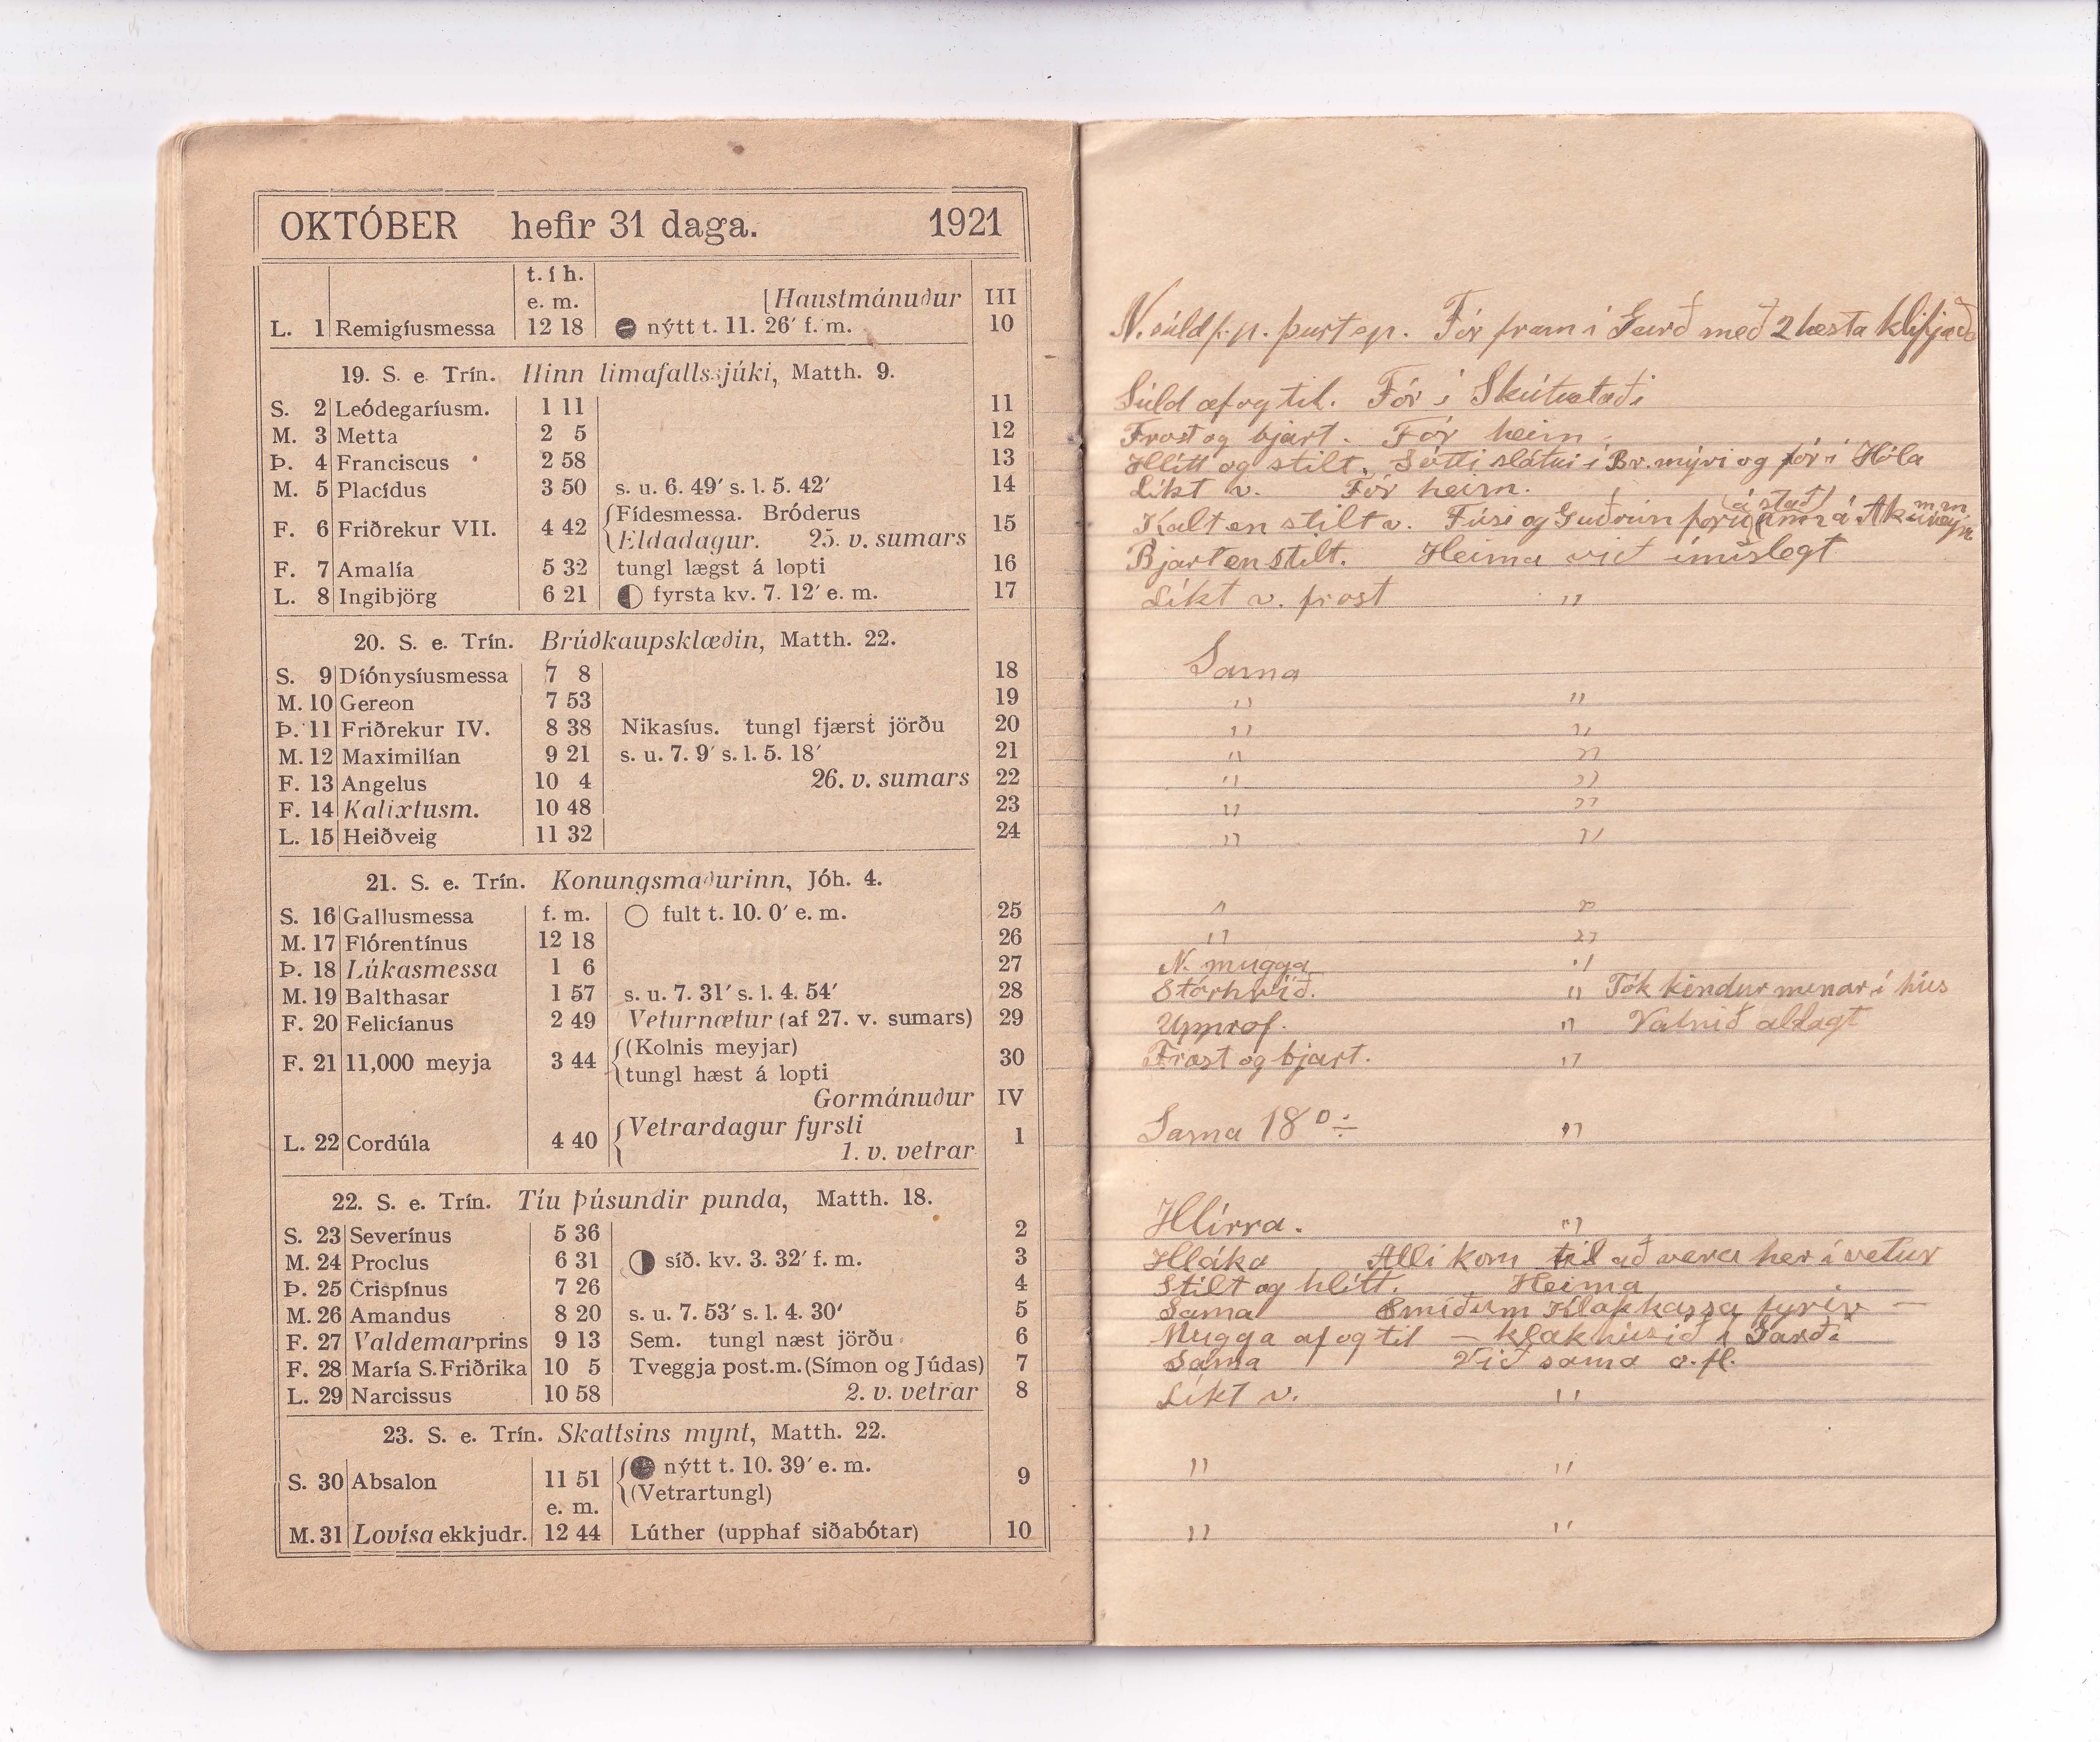 OKTÓBER hefir 31 daga. 1921
t. í h.
e. m. [Haustmánuður III
L. 1 Remigíusmessa 12 18 nýtt t. 11. 26′ f. m. 10
19. S. e. Trín. Hinn limafallssjúki, Matth. 9.
S. 2 Leódegaríusm. 1 11 11
M. 3 Metta 2 5 12
Þ. 4 Franciscus 2 58 13
M. 5 Placídus 3 50 s. u. 6. 49′ s. l. 5. 42′ 14
F. 6 Friðrekur VII. 4 42 Fídesmessa. Bróderus 15
Eldadagur. 25. v. sumars
F. 7 Amalía 5 32 tungl lægst á lopti 16
L. 8 Ingibjörg 6 21 fyrsta kv. 7. 12′ e. m. 17
20. S. e. Trín. Brúðkaupsklæðin, Matth. 22.
S. 9 Díónysíusmessa 7 8 18
M. 10 Gereon 7 53 19
Þ. 11 Friðrekur IV. 8 38 Nikasíus. tungl fjærst jörðu 20
M. 12 Maximilían 9 21 s. u. 7. 9′ s. l. 5. 18′ 21
F. 13 Angelus 10 4 26. v. sumars 22
F. 14 Kalixtusm. 10 48 23
L. 15 Heiðveig 11 32 24
21. S. e. Trín. Konungsmaðurinn, Jóh. 4.
S. 16 Gallusmessa f. m. fult t. 10. 0′ e. m. 25
M. 17 Flórentínus 12 18 26
Þ. 18 Lúkasmessa 1 6 27
M. 19 Balthasar 1 57 s. u. 7. 31′ s. l. 4. 54′ 28
F. 20 Felicíanus 2 49 Veturnætur (af 27. v. sumars) 29
F. 21 11,000 meyja 3 44 (Kolnis meyjar) 30
tungl hæst á lopti
Gormánuður IV
L. 22 Cordúla 4 40 Vetrardagur fyrsti 1
1. v. vetrar
22. S. e. Trín. Tíu þúsundir punda, Matth. 18.
S. 23 Severínus 5 36 2
M. 24 Proclus 6 31 síð. kv. 3. 32′ f. m. 3
Þ. 25 Crispínus 7 26 4
M. 26 Amandus 8 20 s. u. 7. 53′ s. l. 4. 30′ 5
F. 27 Valdemar prins 9 13 Sem. tungl næst jörðu 6
F. 28 María S. Friðrika 10 5 Tveggja post.m. (Símon og Júdas) 7
L. 29 Narcissus 10 58 2. v. vetrar 8
23. S. e. Trín. Skattsins mynt, Matth. 22.
S. 30 Absalon 11 51 nýtt t. 10. 39′ e. m. 9
e. m. (Vetrartungl)
M. 31 Lovísa ekkjudr. 12 44 Lúther (upphaf siðabótar) 10
N. súld f.p. þurt ep. Fór fram í Garð með 2 hesta klifjaða
Súld af og til. Fór í Skútustaði
Frost og bjart. Fór heim.
Hlítt og stilt. Sótti slátur í Br.mýri og fór í Hóla
Líkt v. Fór heim.
Kalt en stilt v. Fúsi og Guðrún fóru (á stað) á Akureyri
Bjart en stilt. Heima við ímislegt
Líkt v. frost "
Sama
" "
" "
" "
" "
" "
" "
" "
" "
N. mugga "
Stórhríð. " Tók kindur mínar í hús
Upprof. " Vatnið aldagt
Frost og bjart. "
Sama 18° ÷ "
Hlírra. "
Hláka Alli kom til að vera her í vetur
Stilt og hlítt. Heima
Sama Smíðum Klakkassa fyrir —
Mugga af og til — klakhúsið í Garði
Sama Við sama o. fl.
Líkt v. "
" "
" "